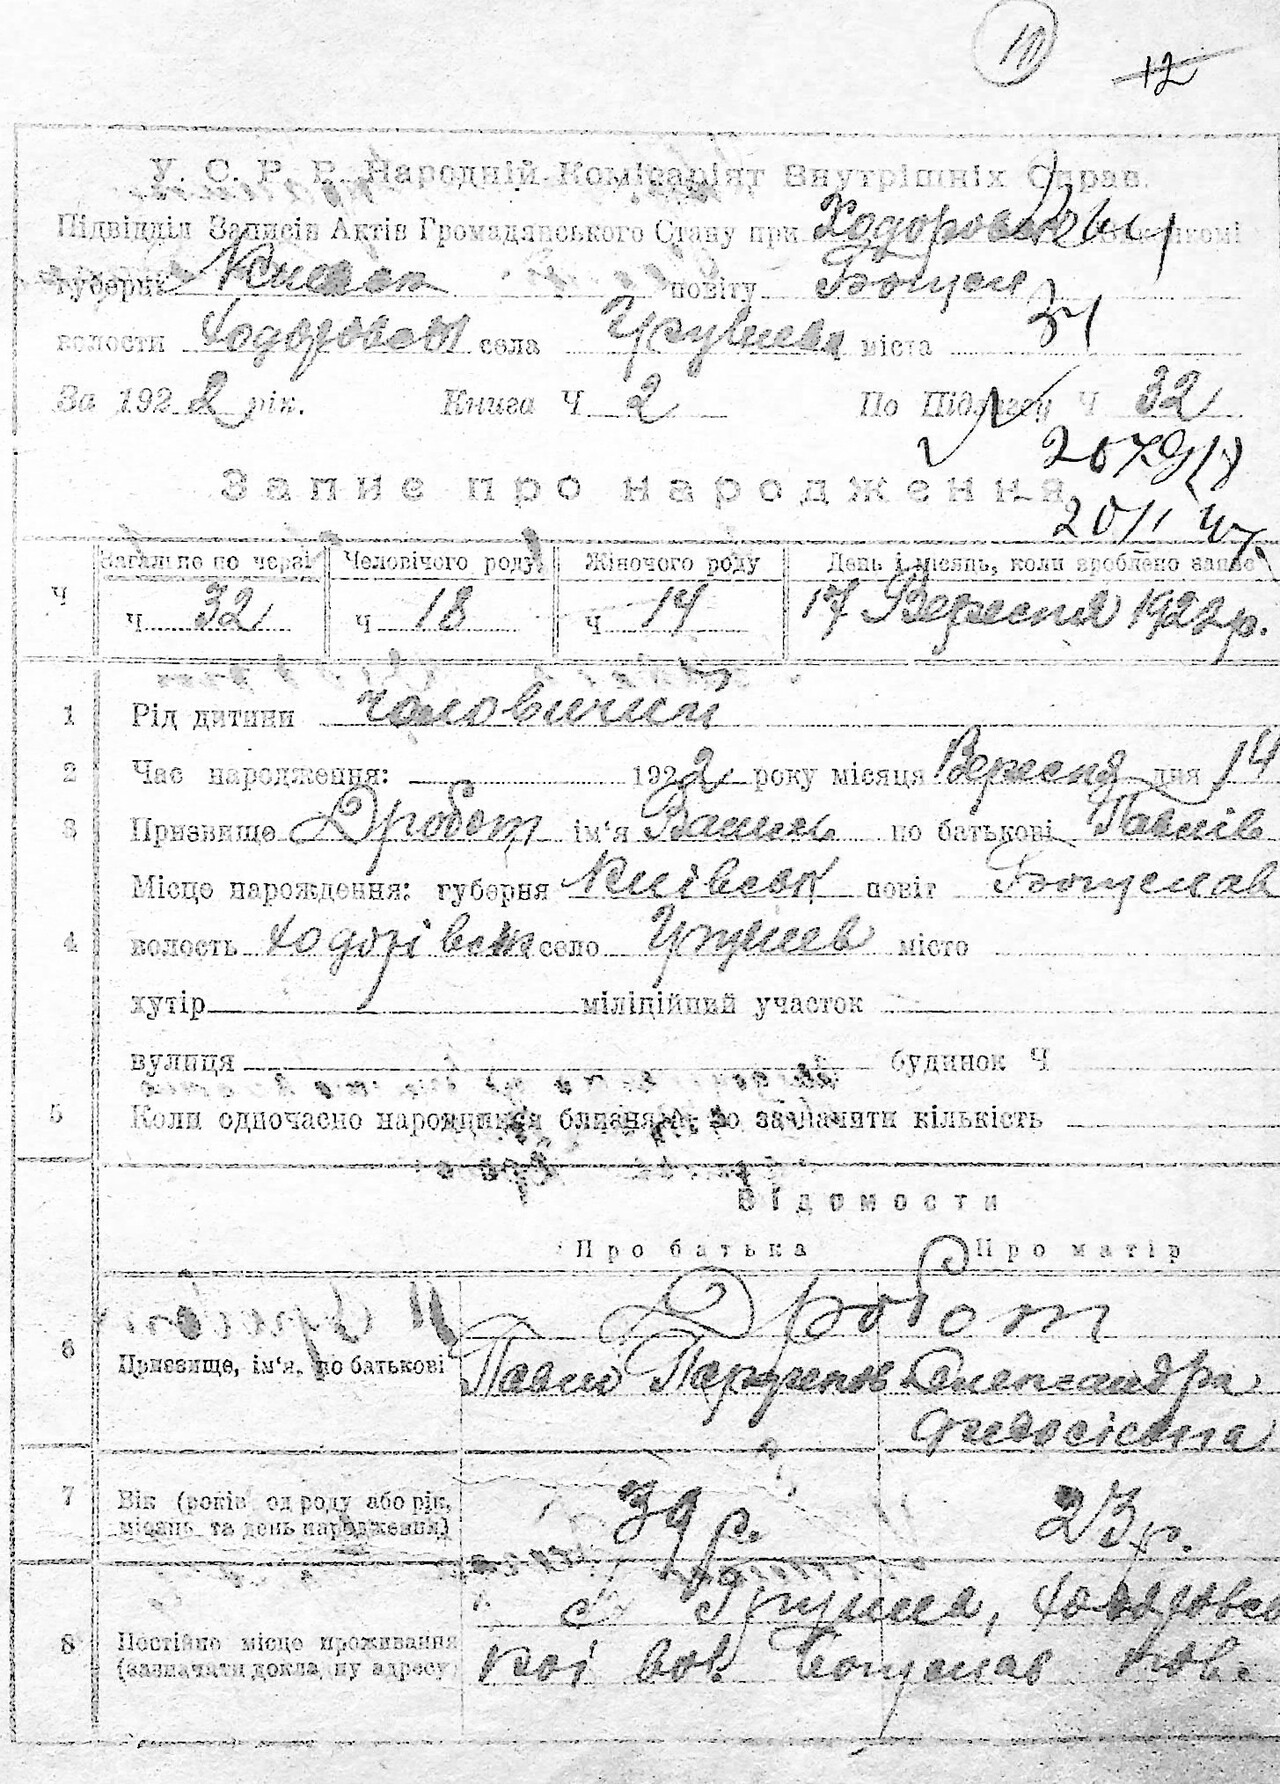 10 12
У. С. Р. Р. Народній Комісаріят Внутрішніх Справ.
Підвідділ Записів Актів Громадянського Стану при Ходоровськ
губерні повіту Богусл
волости Ходоровськ села Грушева міста
34
За 1922 рік. Книга Ч 2 По Підлозі Ч 32
Запис про народження
20/II 47
Загальне по черзі Человічого роду Жіночого роду День і місяць, коли зроблено запис
Ч ч 32 ч 18 ч 14 17 Вересня 1922 р.
1 Рід дитини чоловичий
2 Час народження: 1922 року місяця Вересня дня 14
3 Призвище Дробот ім'я Василь по батькові Павлів
Місце нарождення: губерня Київськ повіт Богуслав
4 волость Ходорівськ село Грушев місто
хутір міліційний участок
вулиця будинок Ч
5 Коли одночасно народилися близнята, то зазначити кількість
Відомости
Про батька Про матір
Дробот
6 Призвище, ім'я, по батькові Павло Олександра
Феодосієвна
7 Вік (років од роду або рік, 39 р. 23 р.
місяць та день народження)
с. Грушева, Ходоровсь
8 Постійне місце проживання кої вол. Богуслав пов.
(зазначати докладну адресу)